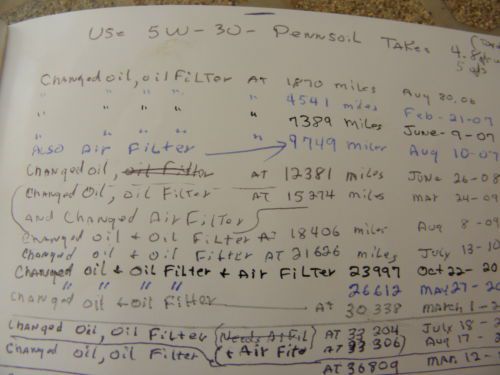 Use 5W-30- Pennsoil Takes 4.8
5 qts
Changed oil, oil Filter AT 1870 miles Aug 20.06
" " " " " 4541 miles Feb-21-07
" " " " " 7389 miles June-9-07
Also Air Filter 9749 miles Aug 10-07
Changed oil, oil Filter AT 12381 miles June 26-08
Changed Oil, oil Filter AT 15274 miles mar 24-09
And Changed Air Filter
Changed oil + oil Filter AT 18406 miles Aug 8-09
Changed oil + oil Filter AT 21626 miles July 13-10
Changed oil + Oil Filter + Air Filter 23997 Oct 22-20
" " " " 26612 May 27-20
Changed oil + oil Filter AT 30338 march 1-2
Changed Oil, Oil Filter (Needs At Fil AT 33 204 July 18-
Changed Oil, oil Filter + Air Filt AT 33 306 Aug 17-
AT 36809 mar. 12-